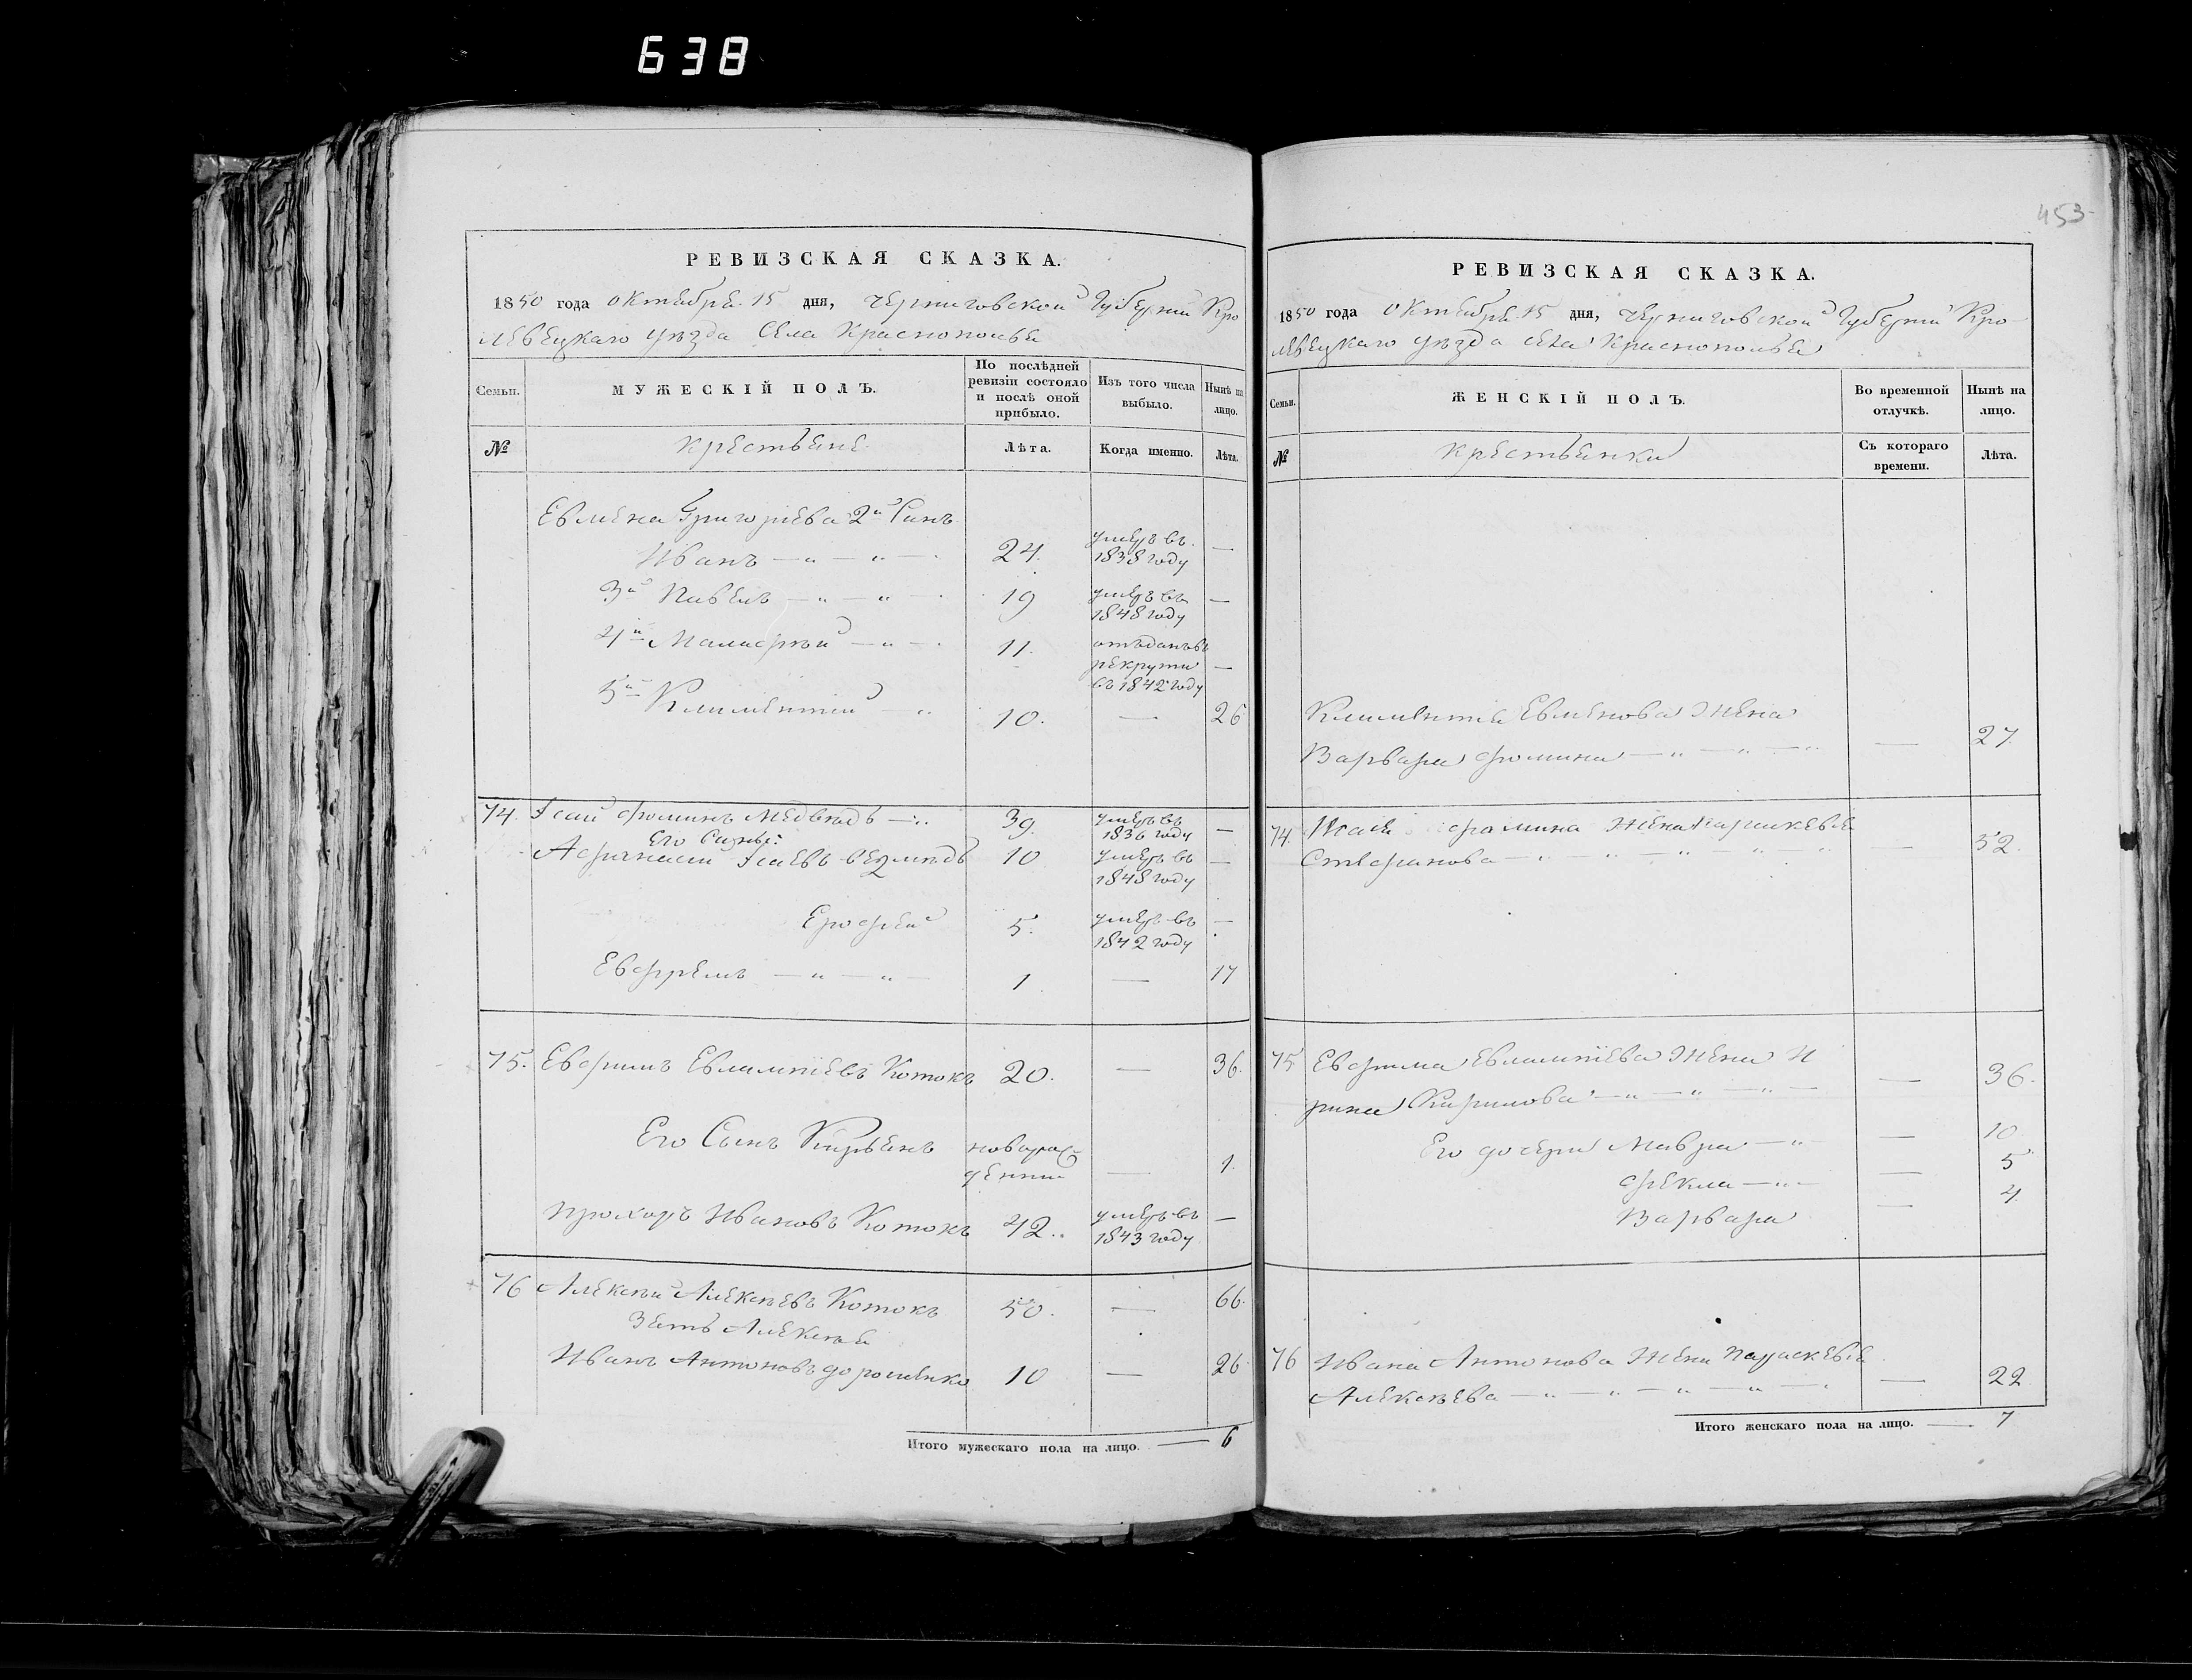 638
453
РЕВИЗСКАЯ СКАЗКА.
1850 года Октября 15 дня, Черниговской Губернии Кро
левецкаго уѣзда Села Краснополья
Семьи.
МУЖЕСКІЙ ПОЛЪ.
По послѣдней
ревизіи состояло
и послѣ оной
прибыло.
Изъ того числа
выбыло.
Нынѣ на
лицо.
№
крестьяне
Лѣта.
Когда именно.
Лѣта.
Евмена Григорьева 2й Синъ
Иванъ — „ — „ — 24. умеръ въ 1838 году —
3й Павелъ — „ — „ 19 умеръ въ 1848 году —
4й Малафѣй — „ — 11. отъданъ въ рекрути въ 1842 году —
5й Климентій — „ 10. — 26
74. Ісай Фоминъ Медвѣдь — 39. умеръ въ 1836 году —
Его Сыны:
Афанасій Ісаевъ 10 умеръ въ 1848 году —
Ерофей 5. умеръ въ 1842 году —
Евфремъ — „ — „ — 1. — 17
75. Евфимъ Евлампіевъ Котокъ 20. — 36.
Его Сынъ новарож
денни — 1.
Прохоръ Ивановъ Котокъ 42.. умеръ въ 1843 году —
76 Алексѣй Алексѣевъ Котокъ 50. — 66.
Зять Алексѣя
Иванъ Антоновъ дорошенко 10 — 26
Итого мужескаго пола на лицо. — 6
РЕВИЗСКАЯ СКАЗКА.
1850 года Октября 15 дня, Черниговской Губернии Кро
левецкаго уѣзда села Краснополья
Семьи.
ЖЕНСКІЙ ПОЛЪ.
Во временной
отлучкѣ.
Нынѣ на
лицо.
№
крестьянки
Съ котораго
времени.
Лѣта.
Климентія Евменова Жена
Варвара Фомина — „ — „ — „ — 27.
74. Исая Фомина Жена Параскевья
Стефанова — „ — „ — „ — „ — „ — 52.
75 Евфима Евлампіева Жена И
рина Кирилова — „ — „ — „ — — 36.
Его дочери Мавра — „ — 10
Фекла — „ — — 5
Варвара — 4
76 Ивана Антонова Жена Параскевья
Алексѣева — „ — „ — „ — „ — — 22
Итого женскаго пола на лицо. — 7